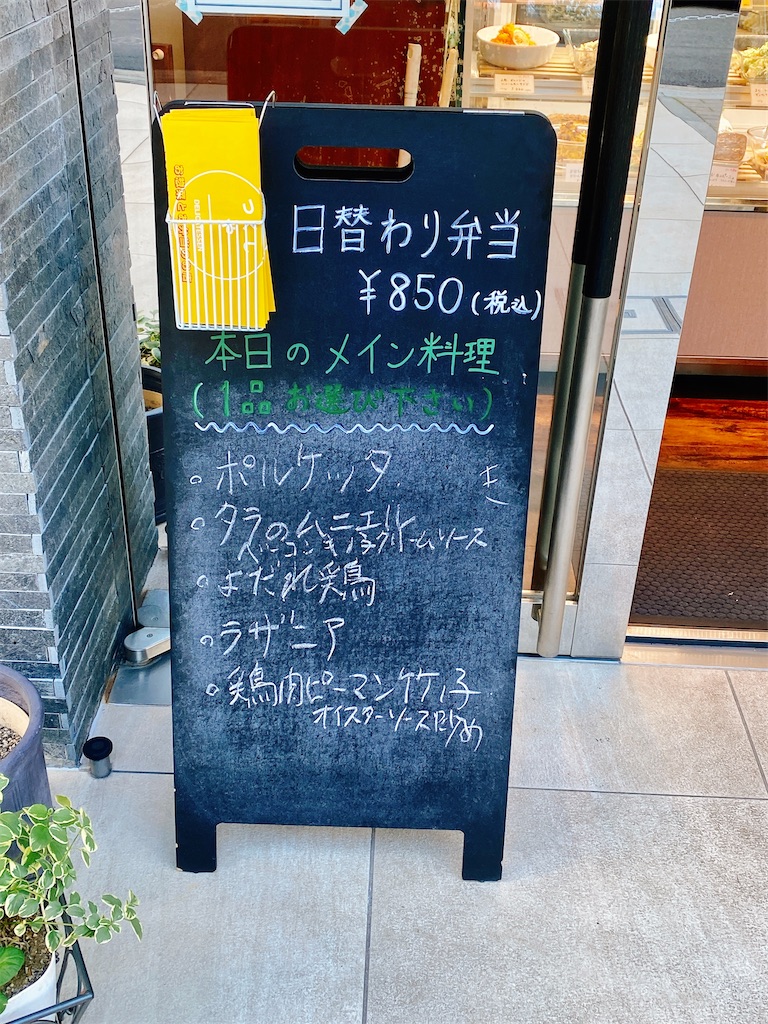 日替わり弁当
¥850(税込)
本日のメイン料理
(1品お選び下さい)
ポルケッタ
タラのムニエル
ベーコンキノコクリームソース
よだれ鶏
ラザニア
鶏肉ピーマン竹の子
オイスターソース炒め